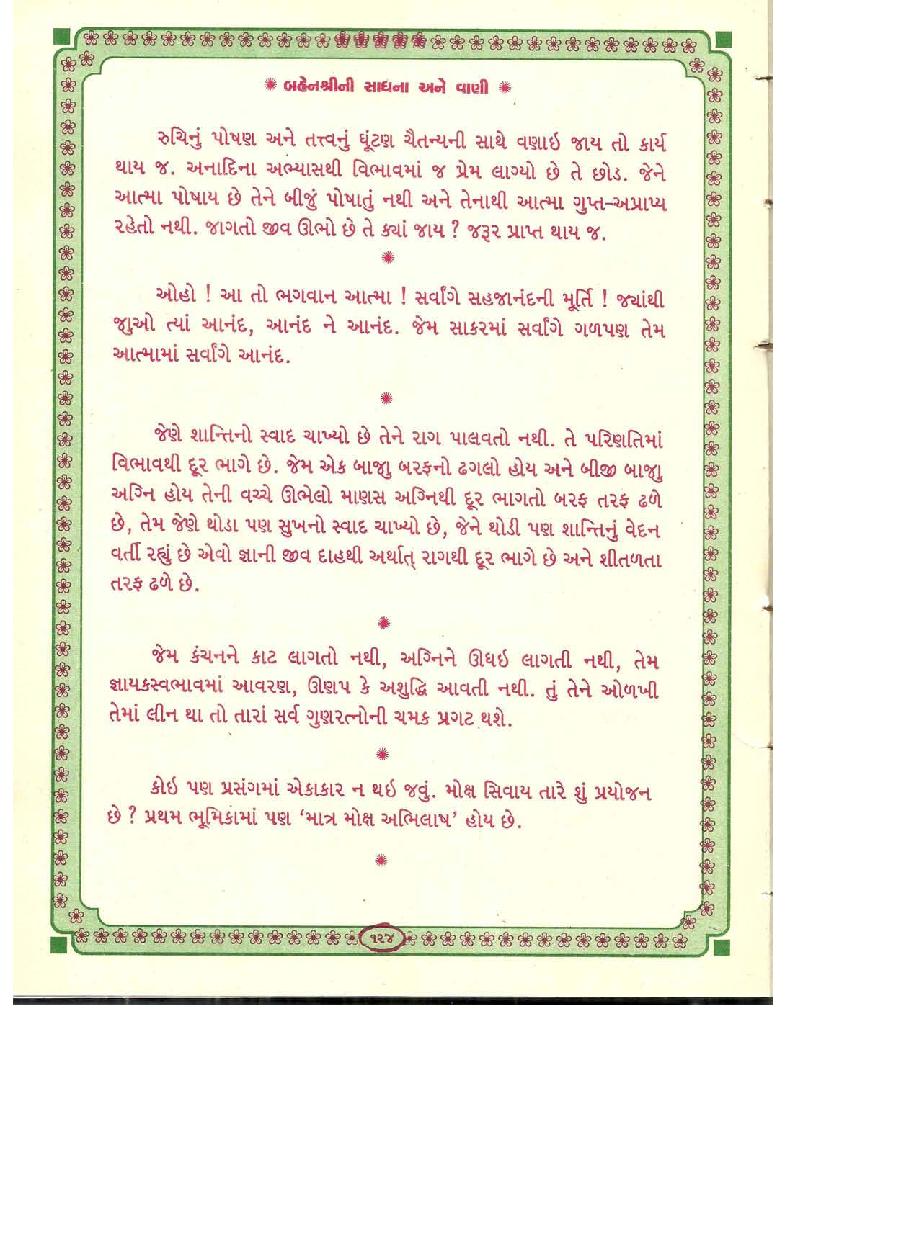 બહેનશ્રીની સાધના અને વાણી
રુચિનું પોષણ અને તત્ત્વનું ઘૂંટણ ચૈતન્યની સાથે વણાઇ જાય તો કાર્ય
થાય જ. અનાદિના અભ્યાસથી વિભાવમાં જ પ્રેમ લાગ્યો છે તે છોડ. જેને
આત્મા પોષાય છે તેને બીજું પોષાતું નથી અને તેનાથી આત્મા ગુપ્ત–અપ્રાપ્ય
રહેતો નથી. જાગતો જીવ ઊભો છે તે ક્યાં જાય ? જરૂર પ્રાપ્ત થાય જ.
ઓહો ! આ તો ભગવાન આત્મા ! સર્વાંગે સહજાનંદની મૂર્તિ ! જ્યાંથી
જાુઓ ત્યાં આનંદ, આનંદ ને આનંદ. જેમ સાકરમાં સર્વાંગે ગળપણ તેમ
આત્મામાં સર્વાંગે આનંદ.
જેણે શાન્તિનો સ્વાદ ચાખ્યો છે તેને રાગ પાલવતો નથી. તે પરિણતિમાં
વિભાવથી દૂર ભાગે છે. જેમ એક બાજાુ બરફનો ઢગલો હોય અને બીજી બાજાુ
અગ્નિ હોય તેની વચ્ચે ઊભેલો માણસ અગ્નિથી દૂર ભાગતો બરફ તરફ ઢળે
છે, તેમ જેણે થોડા પણ સુખનો સ્વાદ ચાખ્યો છે, જેને થોડી પણ શાન્તિનું વેદન
વર્તી રહ્યું છે એવો જ્ઞાની જીવ દાહથી અર્થાત્ રાગથી દૂર ભાગે છે અને શીતળતા
તરફ ઢળે છે.
જેમ કંચનને કાટ લાગતો નથી, અગ્નિને ઊધઇ લાગતી નથી, તેમ
જ્ઞાયકસ્વભાવમાં આવરણ, ઊણપ કે અશુદ્ધિ આવતી નથી. તું તેને ઓળખી
તેમાં લીન થા તો તારાં સર્વ ગુણરત્નોની ચમક પ્રગટ થશે.
કોઇ પણ પ્રસંગમાં એકાકાર ન થઇ જવું. મોક્ષ સિવાય તારે શું પ્રયોજન
છે ? પ્રથમ ભૂમિકામાં પણ ‘માત્ર મોક્ષ અભિલાષ’ હોય છે.
૧૨૪